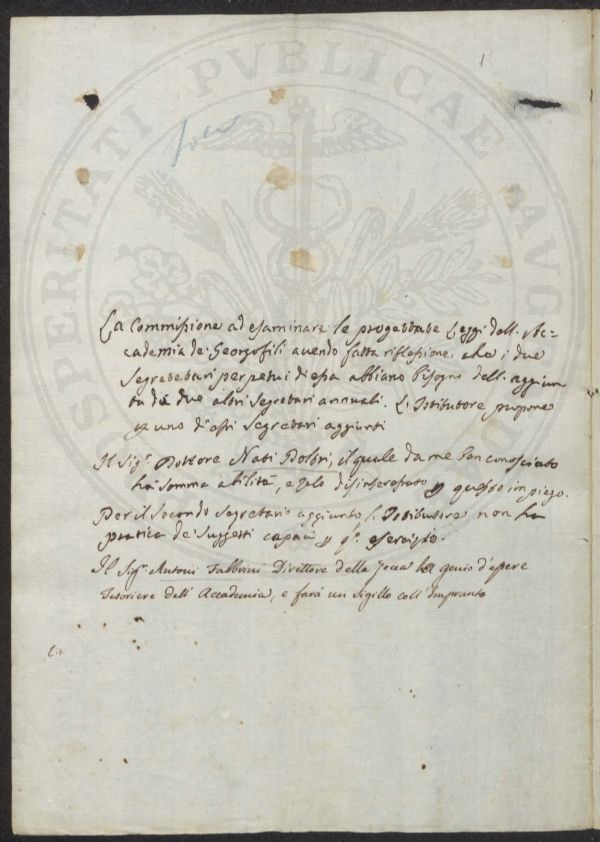 1
PROSPERITATI PVBLICAE AVG
La Commissione ad esaminare le progettate Leggi dell. Ac-
cademia de' Georgofili avendo fatta riflessione che i due
Segretetari perpetui di essa abbiano bisogno dell. aggiun-
ta di due altri Segretari annuali. L'Istitutore propone
uno di essi Segretari aggiunti
Il Sig.r Dottore Nati Dottri, il quale da me ben conosciuto
ha somma abilità, e zelo disinteressato p questo impiego.
Per il Secondo Segretario aggiunto l'Istitutore non ha
pratica de' Suggetti capaci p q.o esercizio.
Il Sig.r Antoni Fabbrini Direttore della Zecca ha genio d'essere
Tesoriere dell' Accademia, e farà un Sigillo coll' Impronto